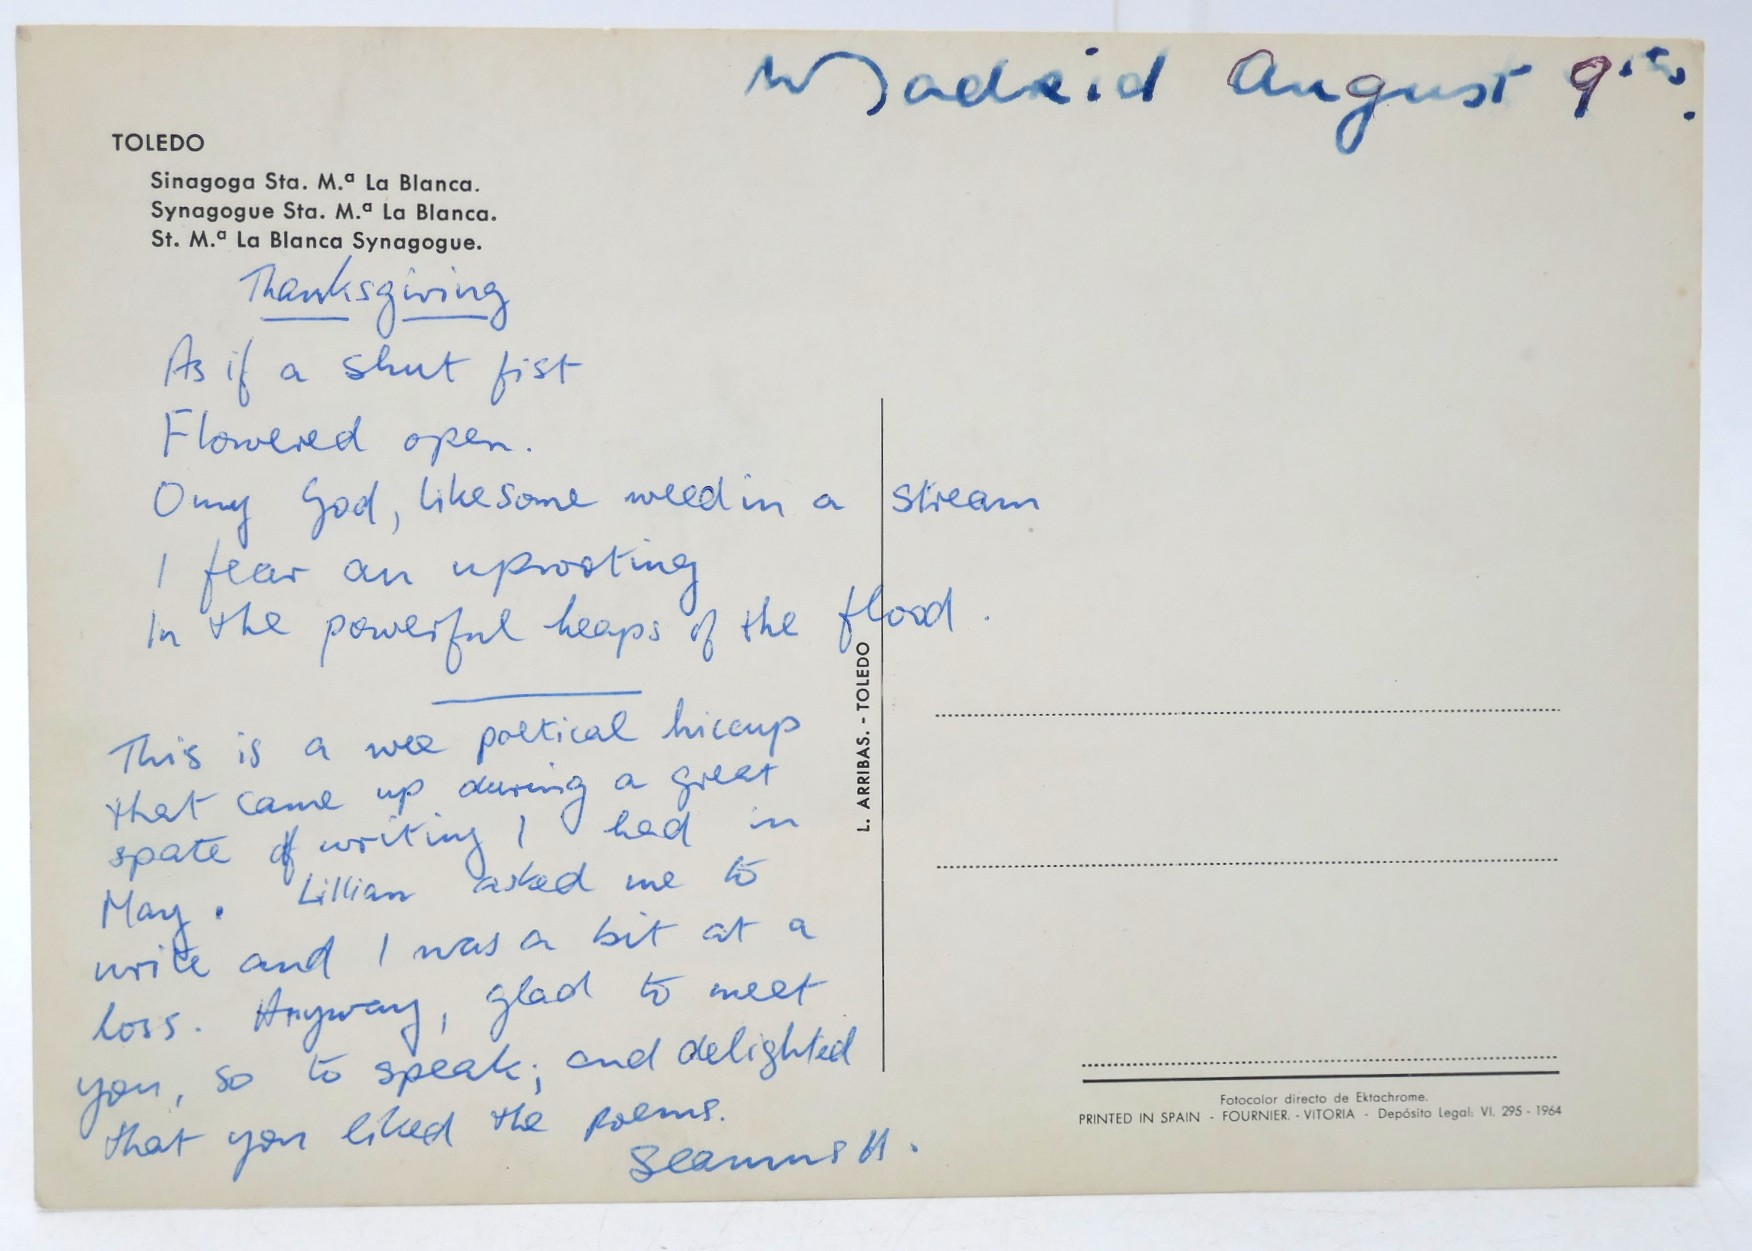 Madrid August 9th.
TOLEDO
Sinagoga Sta. M.ª La Blanca.
Synagogue Sta. M.ª La Blanca.
St. M.ª La Blanca Synagogue.
Thanksgiving
As if a shut fist
Flowered open.
O my God, like some weed in a stream
I fear an uprooting
In the powerful heaps of the flood.
This is a wee poetical hiccup
that came up during a great
spate of writing I had in
May. Lillian asked me to
write and I was a bit at a
loss. Anyway, glad to meet
you, so to speak; and delighted
that you liked the poems.
Seamus H.
L. ARRIBAS. - TOLEDO
Fotocolor directo de Ektachrome.
PRINTED IN SPAIN - FOURNIER. - VITORIA - Depósito Legal: VI. 295 - 1964